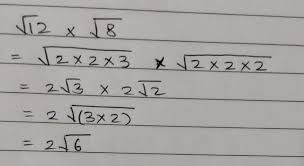 √12 × √8
= √2×2×3 × √2×2×2
= 2√3 × 2√2
= 2√(3×2)
= 2√6